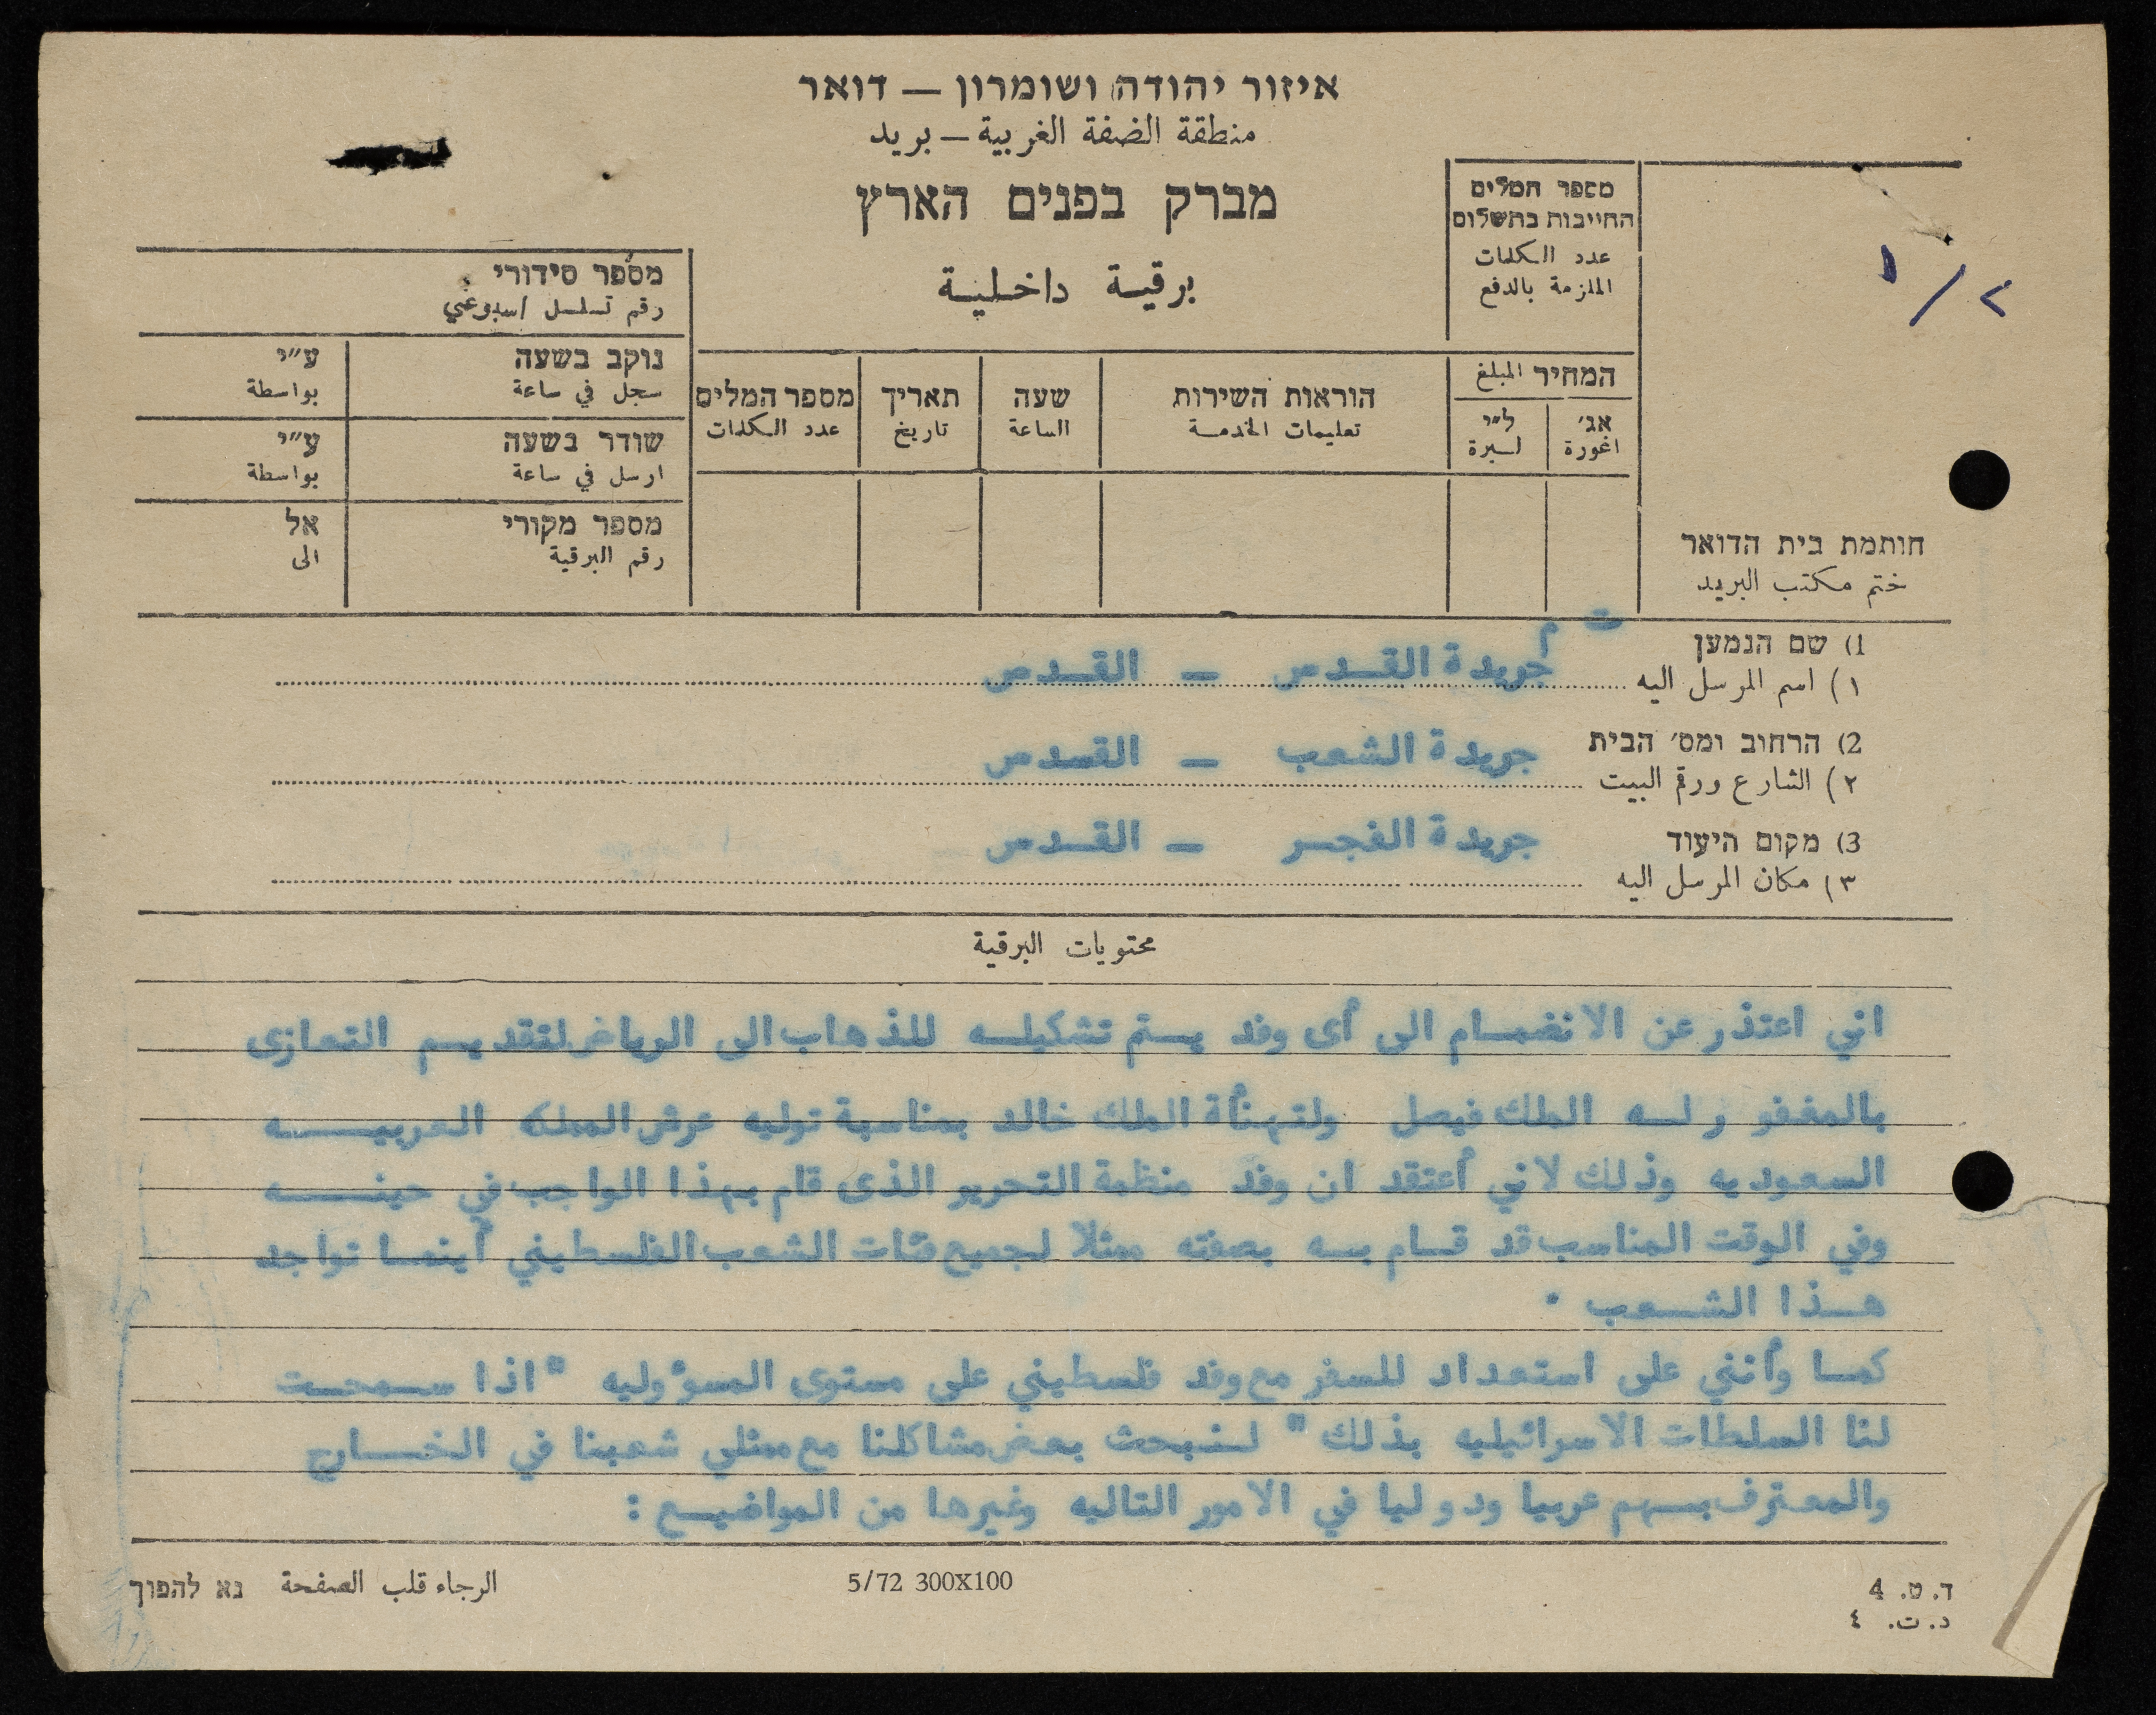 איזור יהודה ושומרון — דואר
منطقة الضفة الغربية — بريد
מברק בפנים הארץ
برقية داخلية
מספר המלים
החייבות בתשלום
عدد الكلمات
الملزمة بالدفع
١/٢
מספר סידורי
رقم تسلسل اسبوعي
נוקב בשעה ע״י
سجل في ساعة بواسطة
שודר בשעה ע״י
ارسل في ساعة بواسطة
מספר מקורי אל
رقم البرقية الى
המחיר المبلغ
אג׳ ל״י
اغورة ليرة
הוראות השירות שעה תאריך מספר המלים
تعليمات الخدمة الساعة تاريخ عدد الكلمات
חותמת בית הדואר
ختم مكتب البريد
1) שם הנמען
١) اسم المرسل اليه جريدة القدس — القدس
2) הרחוב ומס׳ הבית
٢) الشارع ورقم البيت جريدة الشعب — القدس
3) מקום היעוד
٣) مكان المرسل اليه جريدة الفجر — القدس
محتويات البرقية
اني اعتذر عن الانضمام الى أى وفد يتم تشكيله للذهاب الى الرياض لتقديم التعازى
بالمغفور له الملك فيصل ولتهنأة الملك خالد بمناسبة توليه عرش المملكه العربيه
السعوديه وذلك لاني أعتقد ان وفد منظمة التحرير الذى قام بهذا الواجب في حينه
وفي الوقت المناسب قد قام به بصفته ممثلا لجميع فئات الشعب الفلسطيني أينما تواجد
هذا الشعب .
كما وأنني على استعداد للسفر مع وفد فلسطيني على مستوى المسؤوليه " اذا سمحت
لنا السلطات الاسرائيليه بذلك " لنبحث بعض مشاكلنا مع ممثلي شعبنا في الخارج
والمعترف بهم عربيا ودوليا في الامور التاليه وغيرها من المواضيع :
ד. ט. 4
د. ت. ٤
5/72 300X100
الرجاء قلب الصفحة נא להפוך